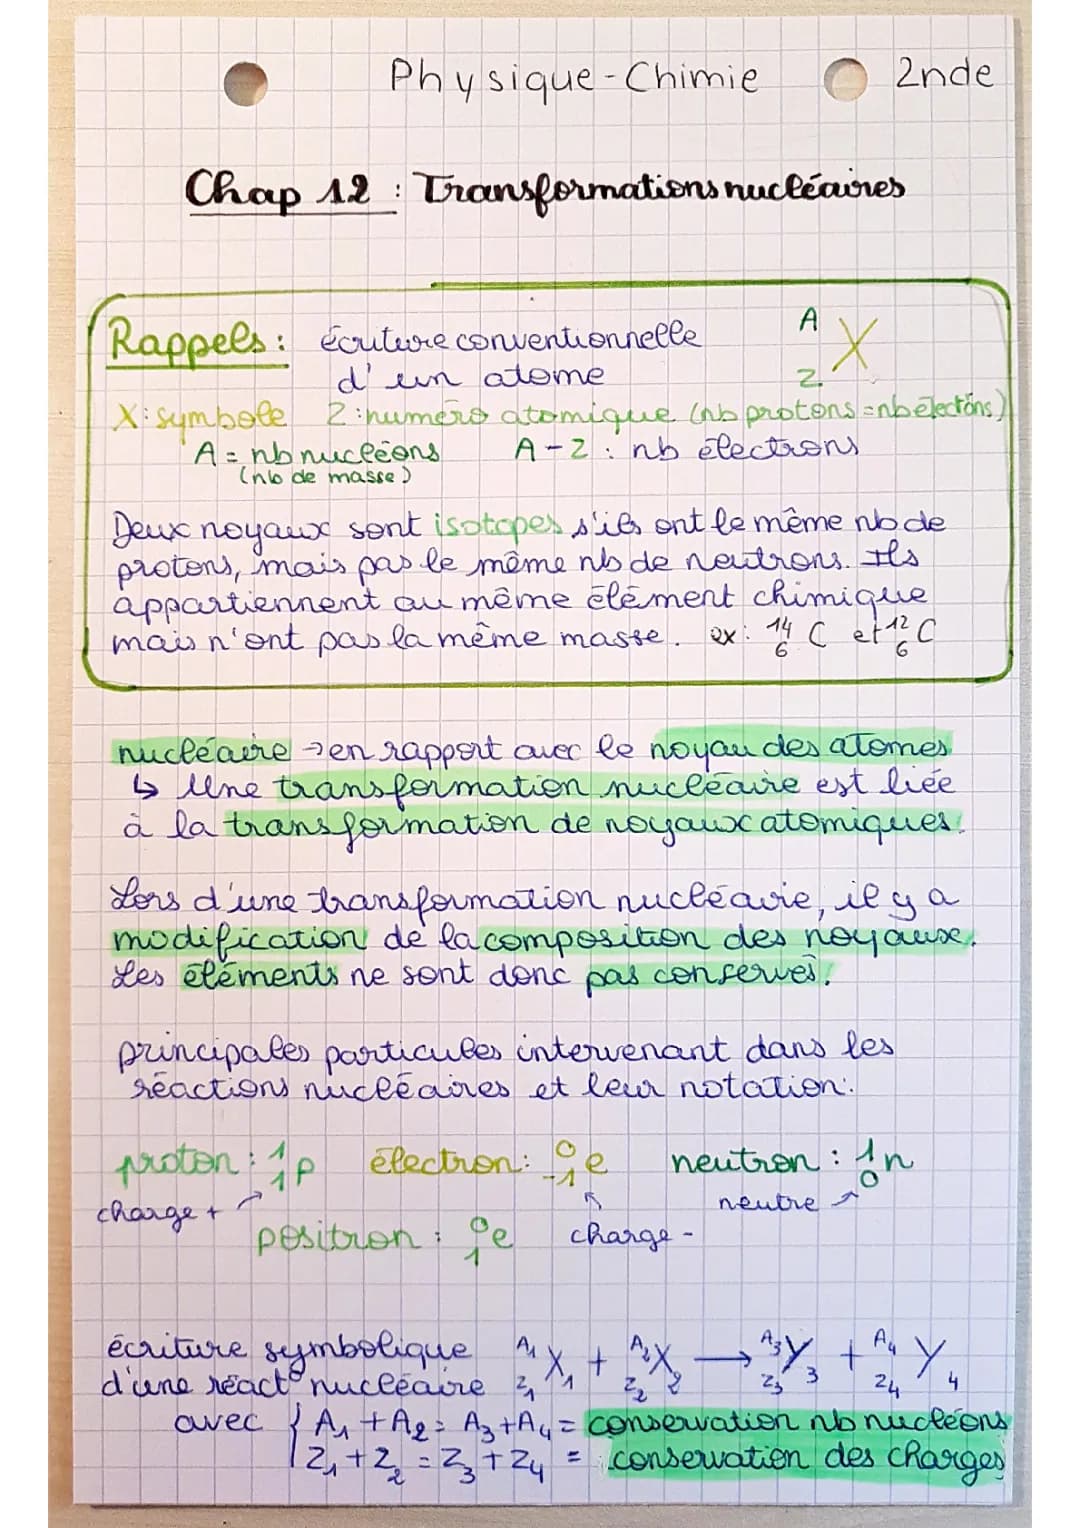 Physique-Chimie 2nde
Chap 12 : Transformations nucléaires
Rappels : écriture conventionnelle A X
d'un atome Z
X : symbole Z : numéro atomique (nb protons = nb électrons)
A = nb nucléons A - Z : nb électrons
(nb de masse)
Deux noyaux sont isotopes s'ils ont le même nb de
protons, mais pas le même nb de neutrons. Ils
appartiennent au même élément chimique
mais n'ont pas la même masse. ex : ¹⁴₆C et ¹²₆C
nucléaire → en rapport avec le noyau des atomes
↳ Une transformation nucléaire est liée
à la transformation de noyaux atomiques.
Lors d'une transformation nucléaire, il y a
modification de la composition des noyaux.
Les éléments ne sont donc pas conservés !
principales particules intervenant dans les
réactions nucléaires et leur notation :
proton : ¹₁p électron : ⁰₋₁e neutron : ¹₀n
charge + neutre
positron : ⁰₁e charge -
écriture symbolique ᴬ¹X₁ + ᴬ²X₂ → ᴬ³Y₃ + ᴬ⁴Y₄
d'une réact° nucléaire Z₁ Z₂ Z₃ Z₄
avec { A₁ + A₂ = A₃ + A₄ = conservation nb nucléons
Z₁ + Z₂ = Z₃ + Z₄ = conservation des charges